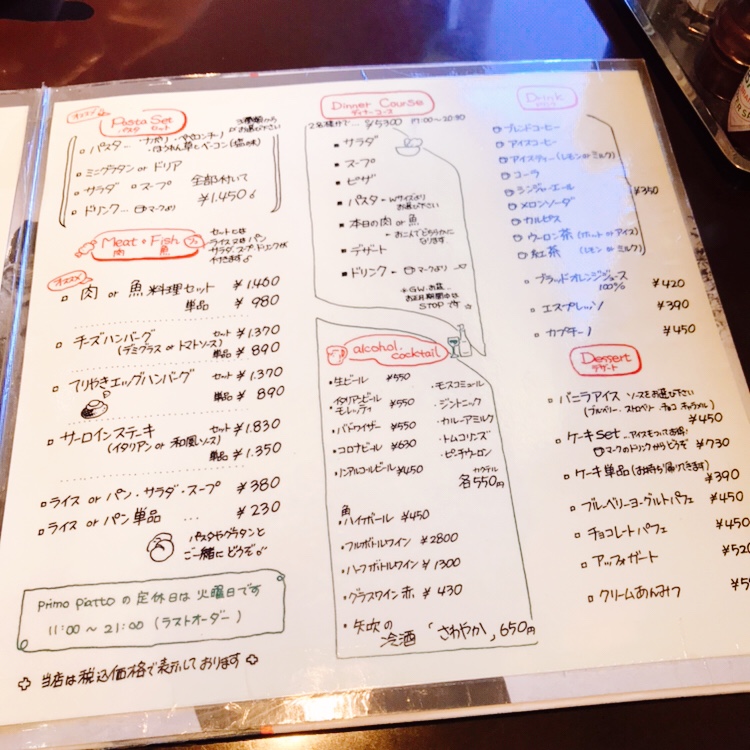 オススメ
Pasta Set
パスタ セット
・パスタ
ほうれん草とベーコン(塩味)
・ミニグラタン or ドリア
・サラダ ・スープ
・ドリンク… マークより
全部付いて
¥1.450
Meat・Fish
肉 魚
セットとは
ライス又は パン
サラダ、スープ、ドリンクが
付きます
オススメ
肉 or 魚 料理セット ¥1.460
単品 ¥980
チーズハンバーグ セット ¥1.370
(デミグラス or トマトソース) 単品 ¥890
てりやきエッグハンバーグ セット ¥1.370
単品 ¥890
サーロインステーキ セット ¥1.830
(イタリアン or 和風ソース) 単品 ¥1.350
ライス or パン・サラダ・スープ ¥380
ライス or パン 単品 … ¥230
パスタやグラタンと
ご一緒に どうぞ
Primo piatto の 定休日は 火曜日です
11:00 〜 21:00 (ラストオーダー)
当店は税込価格で表示しております
Dinner Course
ディナーコース
2名様分で… ¥5300 17:00〜20:30
サラダ
スープ
ピザ
パスタ ← Wサイズより
お選び下さい
本日の肉 or 魚
← おこのみでどちらかに
なります
デザート
ドリンク ← マークより
＊GW、お盆、
お正月期間中は
STOP です
alcohol・cocktail
・生ビール ¥550
・イタリアンビール
モレッティ ¥550
・バドワイザー ¥550
・コロナビール ¥630
・ノンアルコールビール ¥450
・モスコミュール
・ジントニック
・カルーアミルク
・トムコリンズ
・ピーチウーロン
カクテル
各550円
・ハイボール ¥450
・フルボトルワイン ¥2800
・ハーフボトルワイン ¥1300
・グラスワイン 赤、 ¥430
・矢吹の
冷酒 「さわやか」650円
Drink
ドリンク
ブレンドコーヒー
アイスコーヒー
アイスティー (レモン or ミルク)
コーラ
ジンジャーエール
メロンソーダ
カルピス
ウーロン茶 (ホット or アイス)
紅茶 (レモン or ミルク)
¥350
ブラッドオレンジジュース
100% ¥420
エスプレッソ ¥390
カプチーノ ¥450
Dessert
デザート
バニラアイス ソースをお選び下さい
(ブルーベリー・ストロベリー・チョコ キャラメル)
¥450
ケーキ set …アイスもついてお得!
マークのドリンクからどうぞ ¥730
ケーキ単品 (お持ち帰りできます) ¥390
ブルーベリーヨーグルトパフェ ¥450
チョコレートパフェ ¥450
アッフォガート
クリームあんみつ